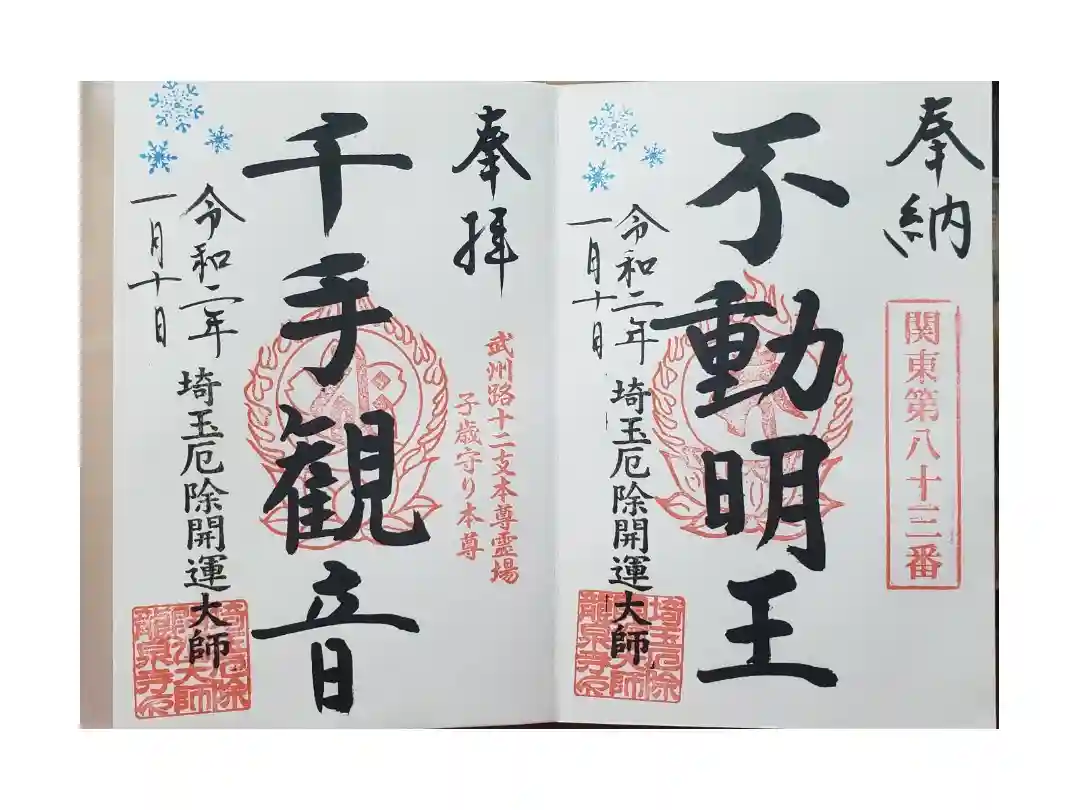 奉納
関東第八十三番
不動明王
令和二年
一月十日
埼玉厄除開運大師
埼玉厄除
開運大師
龍泉寺印
奉拝
武州路十二支本尊霊場
子歳守り本尊
千手観音
令和二年
一月十日
埼玉厄除開運大師
埼玉厄除
開運大師
龍泉寺印